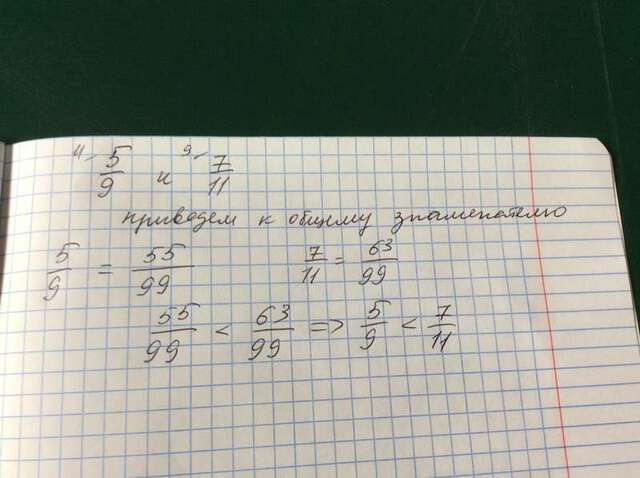 11 5/9 и 9 7/11
приведем к общему знаменателю
5/9 = 55/99 7/11 = 63/99
55/99 < 63/99 => 5/9 < 7/11